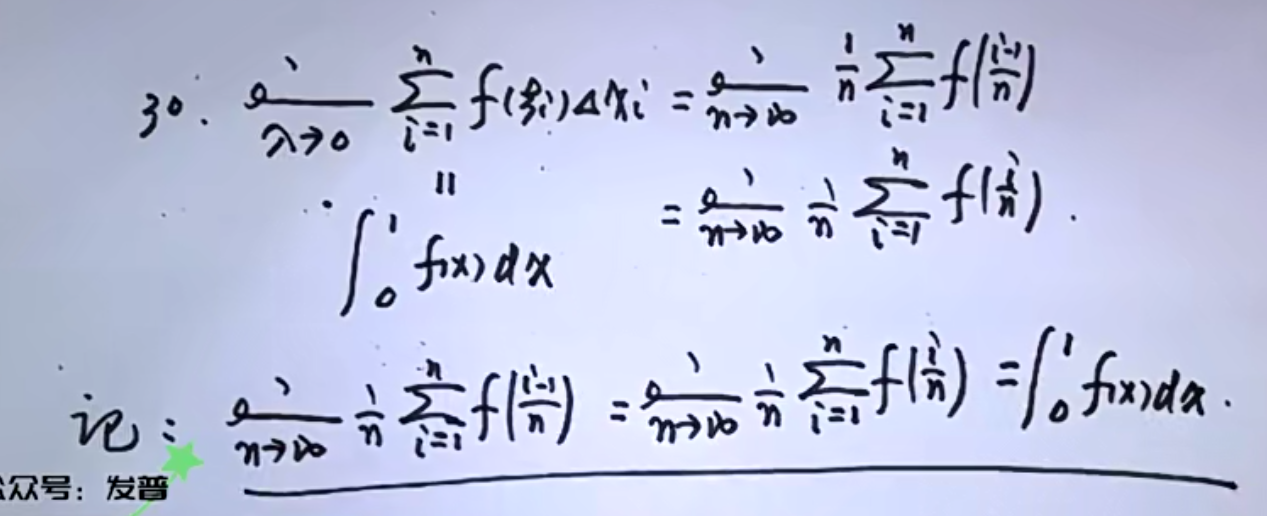 3°. lim_{λ→0} ∑_{i=1}^{n} f(ξi)Δxi = lim_{n→∞} 1/n ∑_{i=1}^{n} f((i-1)/n)
|| = lim_{n→∞} 1/n ∑_{i=1}^{n} f(i/n).
∫_0^1 f(x)dx
记: lim_{n→∞} 1/n ∑_{i=1}^{n} f((i-1)/n) = lim_{n→∞} 1/n ∑_{i=1}^{n} f(i/n) = ∫_0^1 f(x)dx.
众号：发普